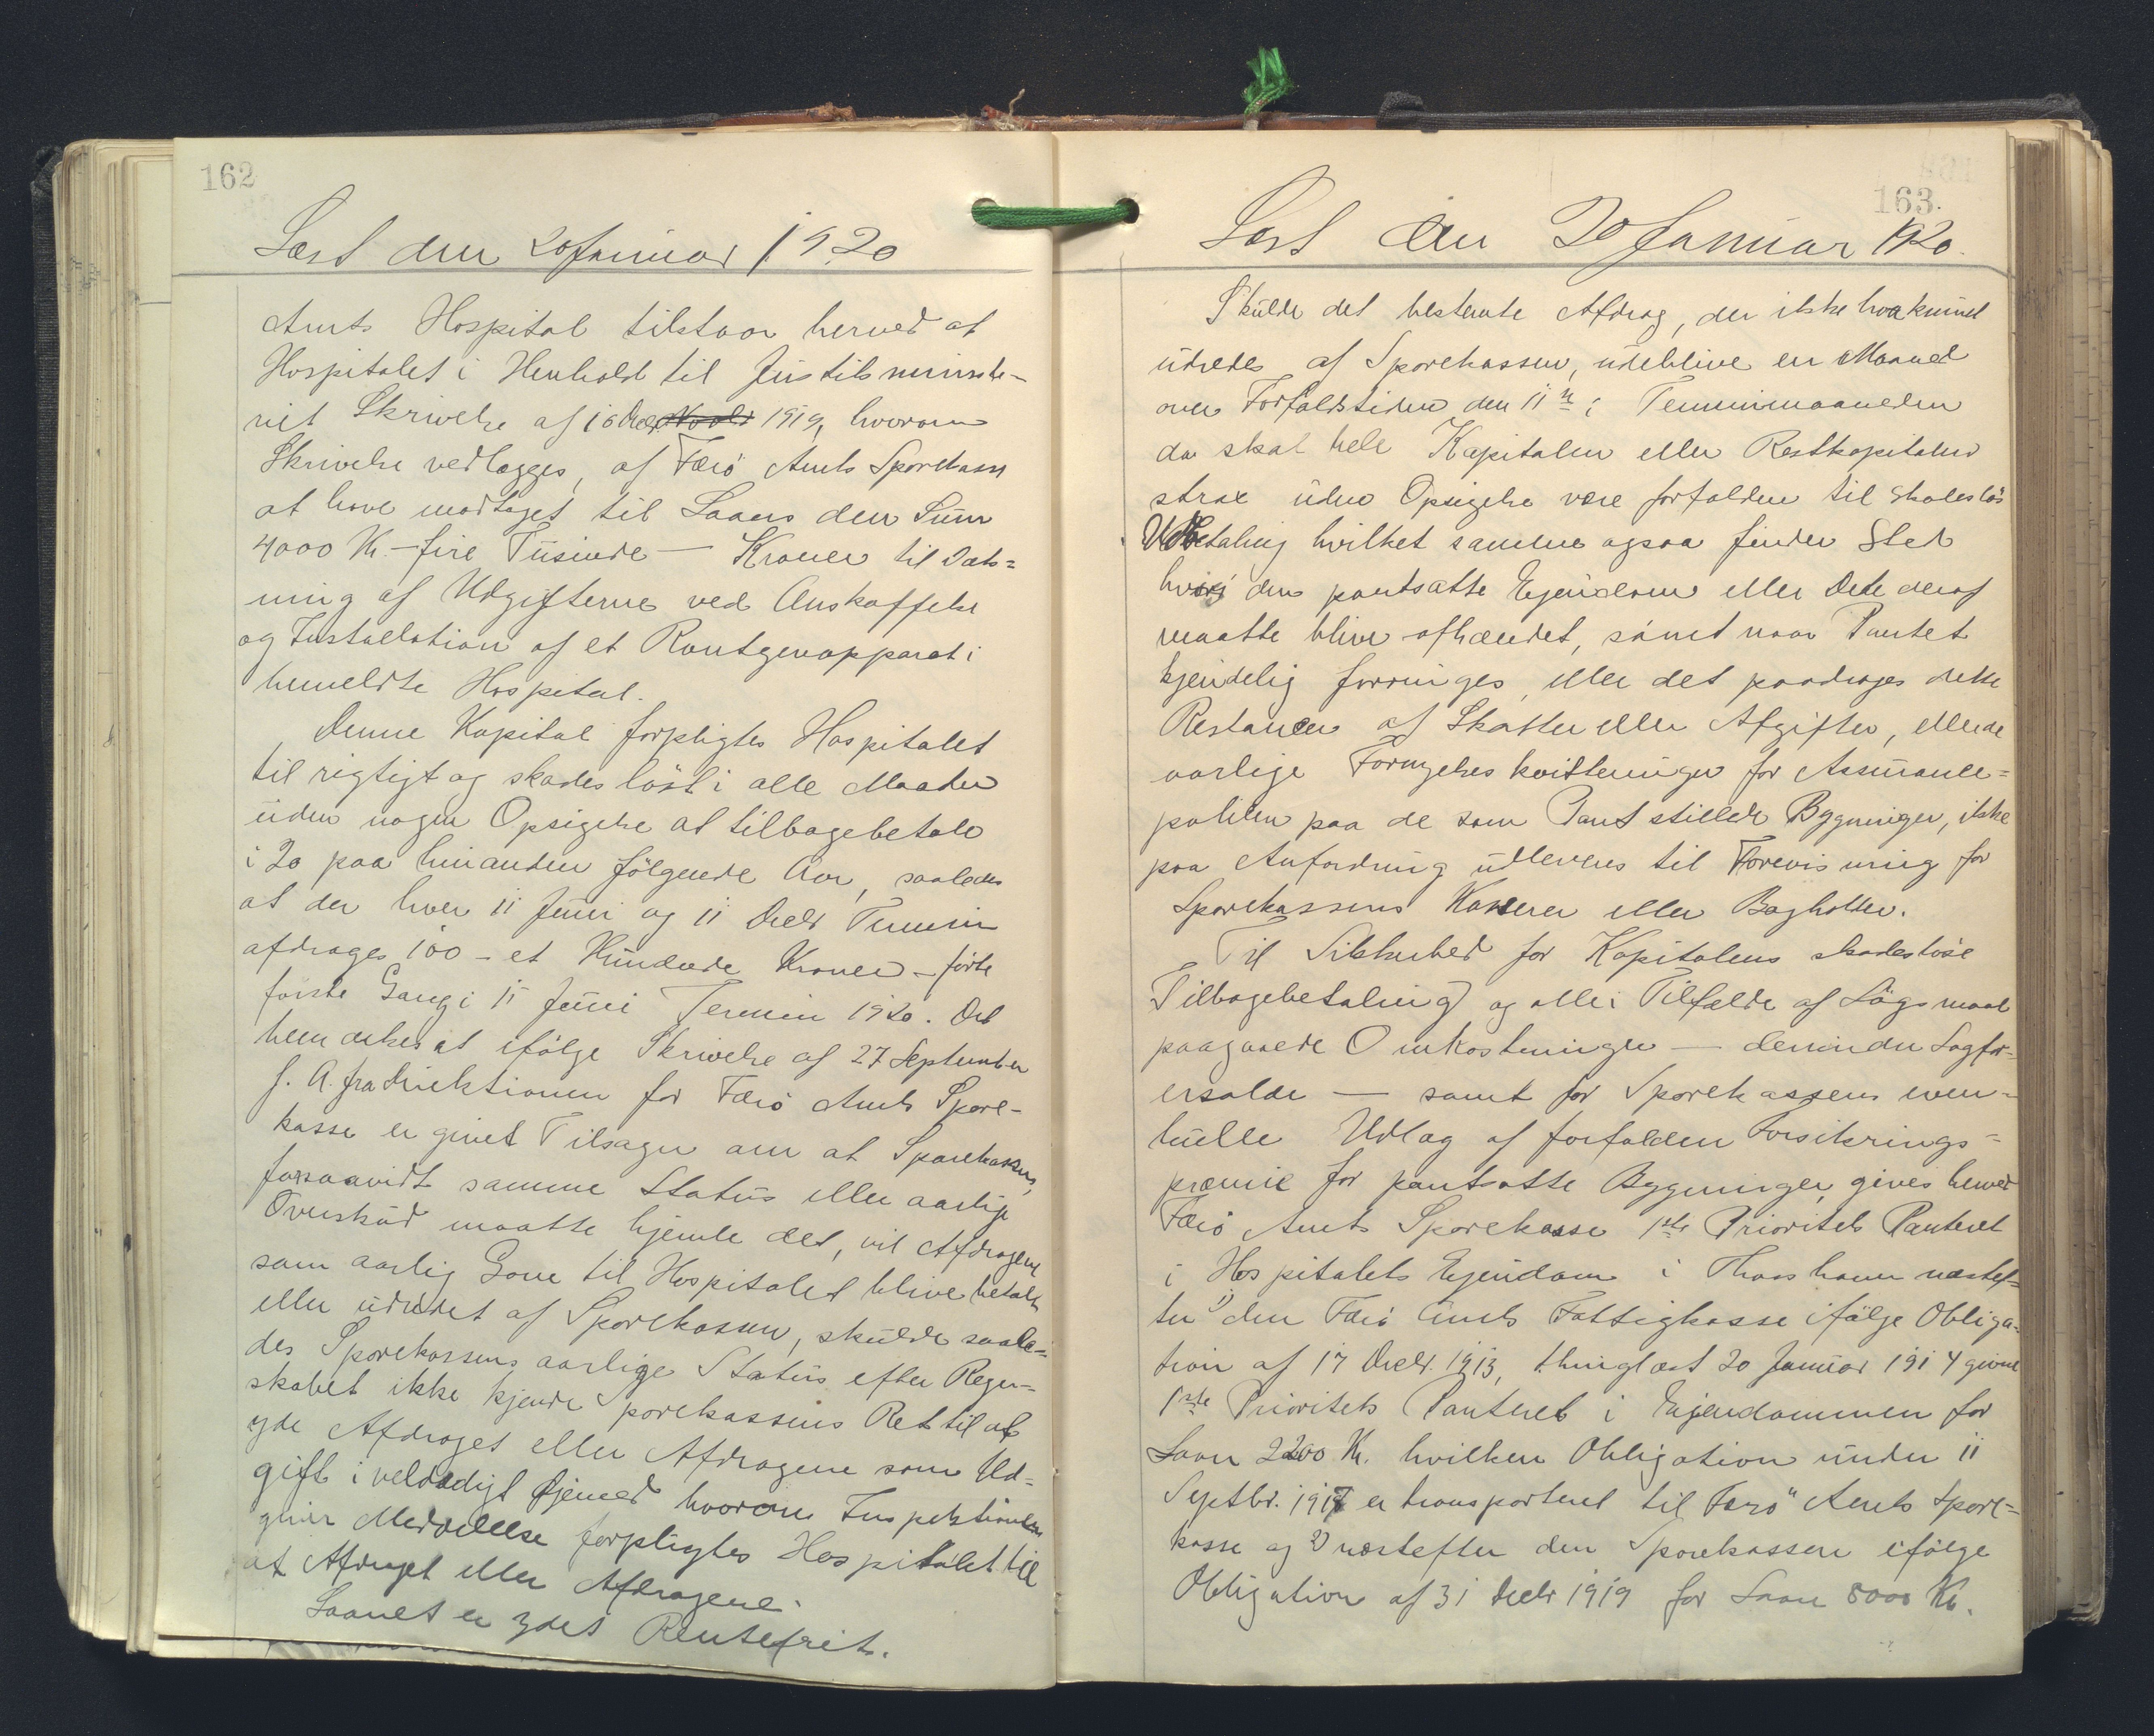 162
Læst den 20 Januar 1920
Amts Hospital tilstaar herved at
Hospitalet i Henhold til Justitsministe-
riet Skrivelse af 16 Decbr 1919, hvorom
Skrivelse vedlægges, af Færö Amts Sparekasse
at have modtaget til Laans den Sum
4000 Kr. - fire Tusinde - Kroner til Dæk=
ning af Udgifterne ved Anskaffelse
og Installation af et Rontgenapparat i
bemeldte Hospital.
Denne Kapital forpligtes Hospitalet
til rigtigt og skadeslöst i alle Maader
uden nogen Opsigelse at tilbagebetale
i 20 paa hinanden fölgende Aar, saaledes
at der hver 11 Juni og 11 Decbr Termin
afdrages 100 - et Hundrede Kroner - förte
förste Gang i 11 Juni Termin 1920. Det
bemærkes at ifölge Skrivelse af 27 September
f. A. fra Direktionen for Færö Amts Spare-
kasse er givet Tilsagn om at Sparekassen,
forsaavidt samme Status eller aarlige
Overskud maatte hjemle det, vil Afdragene
som aarlig Gave til Hospitalet blive betalt
eller udredet af Sparekassen, skulde saale=
des Sparekassens aarlige Status efter Regn-
skabet ikke kjende Sparekassens Ret til at
yde Afdraget eller Afdragene som Ud=
gift i veldædigt Öjemed hvorom Inspektionen
giver Meddelelse forpligtes Hospitalet til
at Afdraget eller Afdragene.
Laanet er ydet Rentefrit.
163.
Læst den 20 Januar 1920.
Skulde det bestemte Afdrag, der ikke har kunnet
udredes af Sparekassen, udeblive en Maaned
over Forfaldstiden den 11te i Terminmaaneden
da skal hele Kapitalen eller Restkapitalen
strax uden Opsigelse være forfalden til skadeslös
Udbetaling hvilket samme ogsaa finder Sted
hvis den pantsatte Ejendom eller Dele deraf
maatte blive afhændet, samt naar Pantet
kjendelig forringes, eller det paadrages dette
Restancer af Skatter eller Afgifter, eller de
aarlige Fornyelseskvitteringer for Assurance=
policen paa de som Pant stillede Bygninger, ikke
paa Anfordring udleveres til Forevisning for
Sparekassens Kasserer eller Bogholder.
Til Sikkerhed for Kapitalens skadeslöse
Tilbagebetaling og alle i Tilfælde af Lögsmaal
paagaaede Omkostninger - derunder Sagför-
ersalær - samt for Sparekassens even-
tuelle Udlæg af forfalden Forsikrings=
præmie for pantsatte Bygninger, gives herved
Færö Amts Sparekasse 1ste Prioritets Panteret
i Hospitalets Ejendom i Thorshavn næstef=
ter 1) den Færö Amts Fattigkasse ifölge Obliga=
tion af 17 Decbr. 1913, thinglæst 20 Januar 1914 givne
1ste Prioritets Panteret i Ejendommen for
Laan 2200 Kr. hvilken Obligation under 11
Septbr. 1917 er transporteret til Færö Amts Spare=
kasse og 2) næstefter den Sparekassen ifölge
Obligation af 31 Decbr 1919 for Laan 8000 Kr.